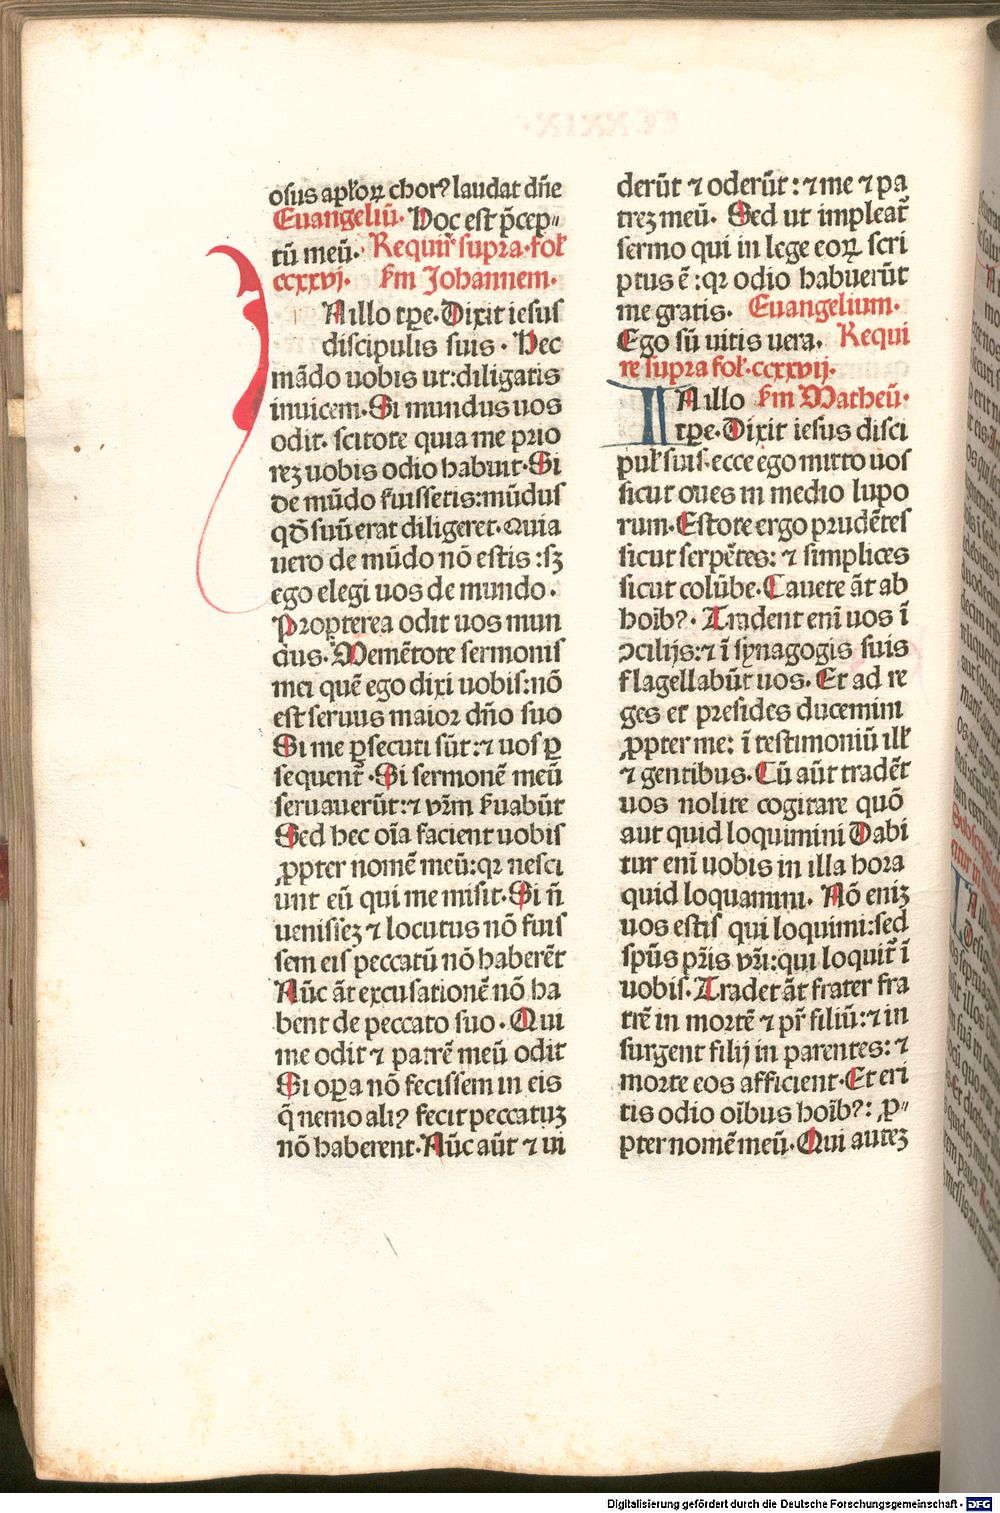 osus aṗłoꝝ choꝛꝰ laudat dn̄e
Euangeliū. Hoc est p̄cep⸗
tū meū. Requir̄ supra·fol̄
ccxxvj. ẜm Johannem.
IN illo tꝑe. Dixit iesus
discipulis suis. Hec
mādo uobis ut: diligatis
inuicem. Si mundus uos
odit. scitote quia me prio
reꝫ uobis odio habuit. Si
de mūdo fuissetis: mūdus
qḋ suū erat diligeret. Quia
uero de mūdo nō estis: sꝫ
ego elegi uos de mundo.
Propterea odit uos mun
dus. Memētote sermonis
mei quē ego dixi uobis: nō
est seruus maior dn̄o suo
Si me ꝑsecuti sūt: ⁊ uos ꝑ
sequent̄. Si sermonē meū
seruauerūt: ⁊ vr̄m ẜuabūt
Sed hec oīa facient uobis
ꝓpter nomē meū: qꝛ nesci
unt eū qui me misit. Si n̄
uenisseꝫ ⁊ locutus nō fuis
sem eis peccatū nō haberēt
Nūc āt excusationē nō ha
bent de peccato suo. Qui
me odit ⁊ patrē meū odit
Si oꝑa nō fecissem in eis
q̄ nemo aliꝰ fecit peccatuꝫ
nō haberent. Nūc aūt ⁊ ui
derūt ⁊ oderūt: ⁊ me ⁊ pa
treꝫ meū. Sed ut impleat̄
sermo qui in lege eoꝝ scri
ptus ē: qꝛ odio habuerūt
me gratis. Euangelium.
Ego sū uitis uera. Requi
re supra fol. ccxxvij.
IN illo ẜm Matheū.
tꝑe. Dixit iesus disci
pul̄ suis. ecce ego mitto uos
sicut oues in medio lupo
rum. Estote ergo prudētes
sicut serpētes: ⁊ simplices
sicut colūbe. Cauete āt ab
hoībꝰ. Tradent enī uos ī
ↄcilijs: ⁊ ī synagogis suis
flagellabūt uos. Et ad re
ges et presides ducemini
ꝓpter me: ī testimoniū ill̄
⁊ gentibus. Cū aūt tradēt
uos nolite cogitare quō
aut quid loquimini Dabi
tur enī uobis in illa hora
quid loquamini. Nō eniꝫ
uos estis qui loquimi: sed
sp̄us pr̄is vr̄i: qui loquit̄ ī
uobis. Tradet āt frater fra
trē in mortē ⁊ pr̄ filiū: ⁊ in
surgent filij in parentes: ⁊
morte eos afficient. Et eri
tis odio oībus hoībꝰ: ꝓ⸗
pter nomē meū. Qui auteꝫ
Digitalisierung gefördert durch die Deutsche Forschungsgemeinschaft - DFG